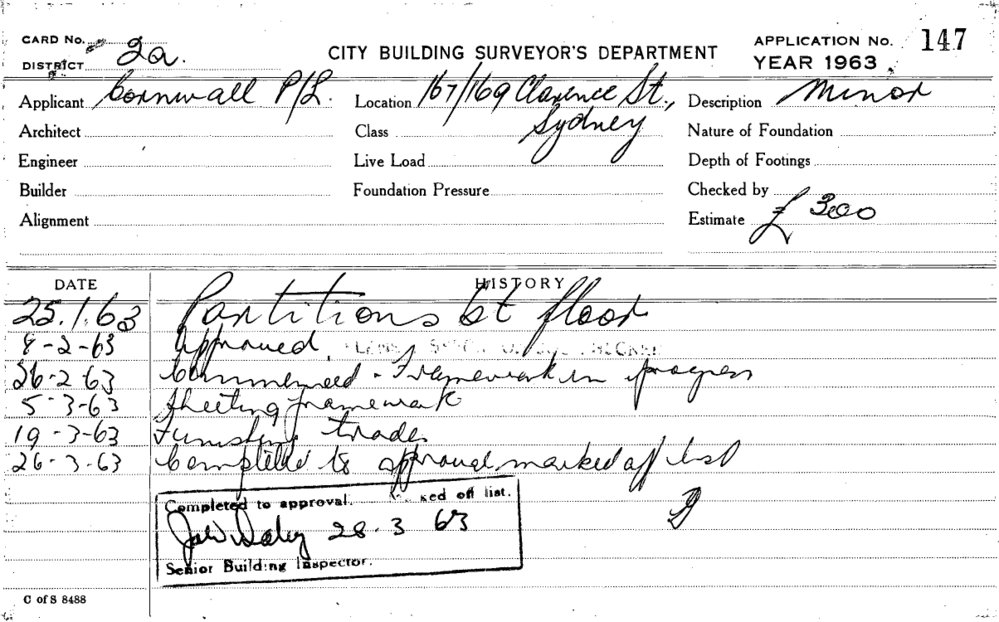 CARD No.
DISTRICT 2a.
CITY BUILDING SURVEYOR'S DEPARTMENT
APPLICATION No. 147
YEAR 1963
Applicant Cornwall P/L.
Location 167/169 Clarence St., Sydney
Description Minor
Architect
Class
Nature of Foundation
Engineer
Live Load
Depth of Footings
Builder
Foundation Pressure
Checked by
Alignment
Estimate £ 300
DATE HISTORY
25.1.63 Partitions 1st floor
8-2-63 Approved.
26-2-63 Commenced - Framework in progress
5-3-63 Sheeting framework
19-3-63 Finishing trades
26-3-63 Completed to approval marked off list
Completed to approval. ked off list.
28.3 63
Senior Building Inspector.
C of S 8488